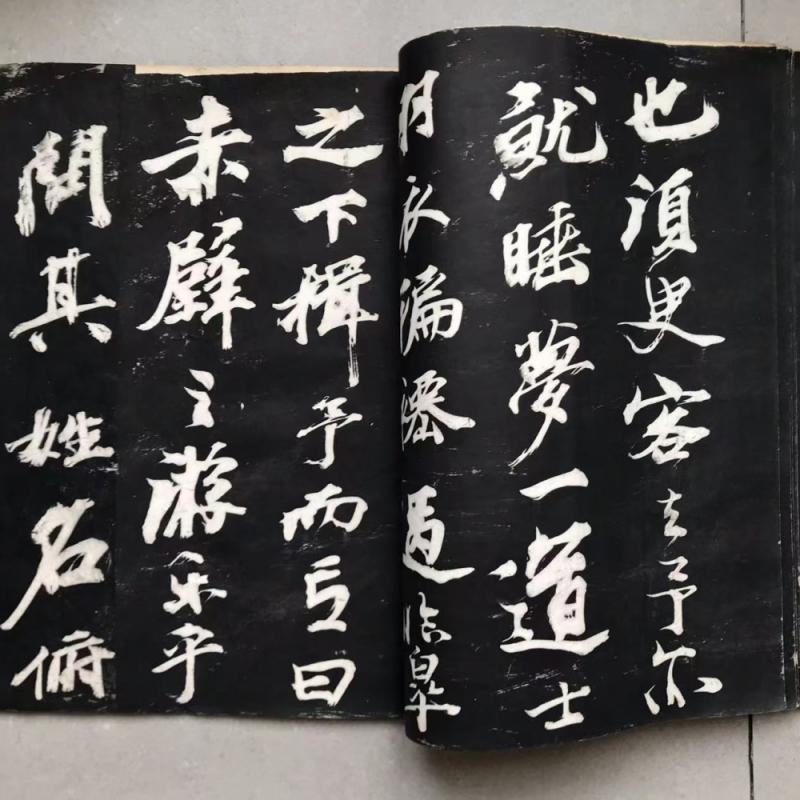 也須臾客去予亦
就睡夢一道士
羽衣蹁躚過臨皋
之下揖予而言曰
赤壁之游乐乎
問其姓名俯